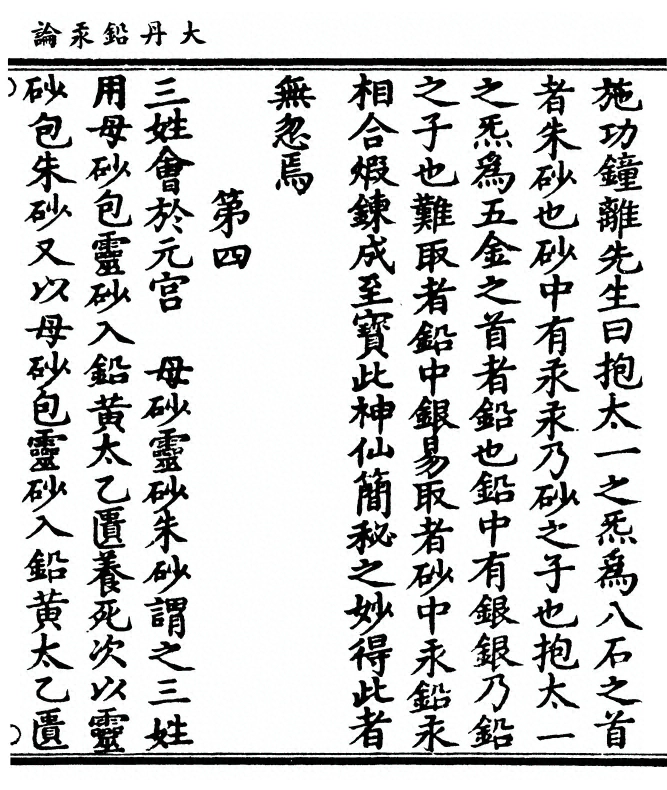 大丹鉛汞論
施功鐘離先生曰抱太一之炁爲八石之首
者朱砂也砂中有汞汞乃砂之子也抱太一
之炁爲五金之首者鉛也鉛中有銀銀乃鉛
之子也難取者鉛中銀易取者砂中汞鉛汞
相合煅鍊成至寳此神仙簡秘之妙得此者
無忽焉
第四
三姓會於元宫 母砂靈砂朱砂謂之三姓
用母砂包靈砂入鉛黄太乙匱養死次以靈
砂包朱砂又以母砂包靈砂入鉛黄太乙匱